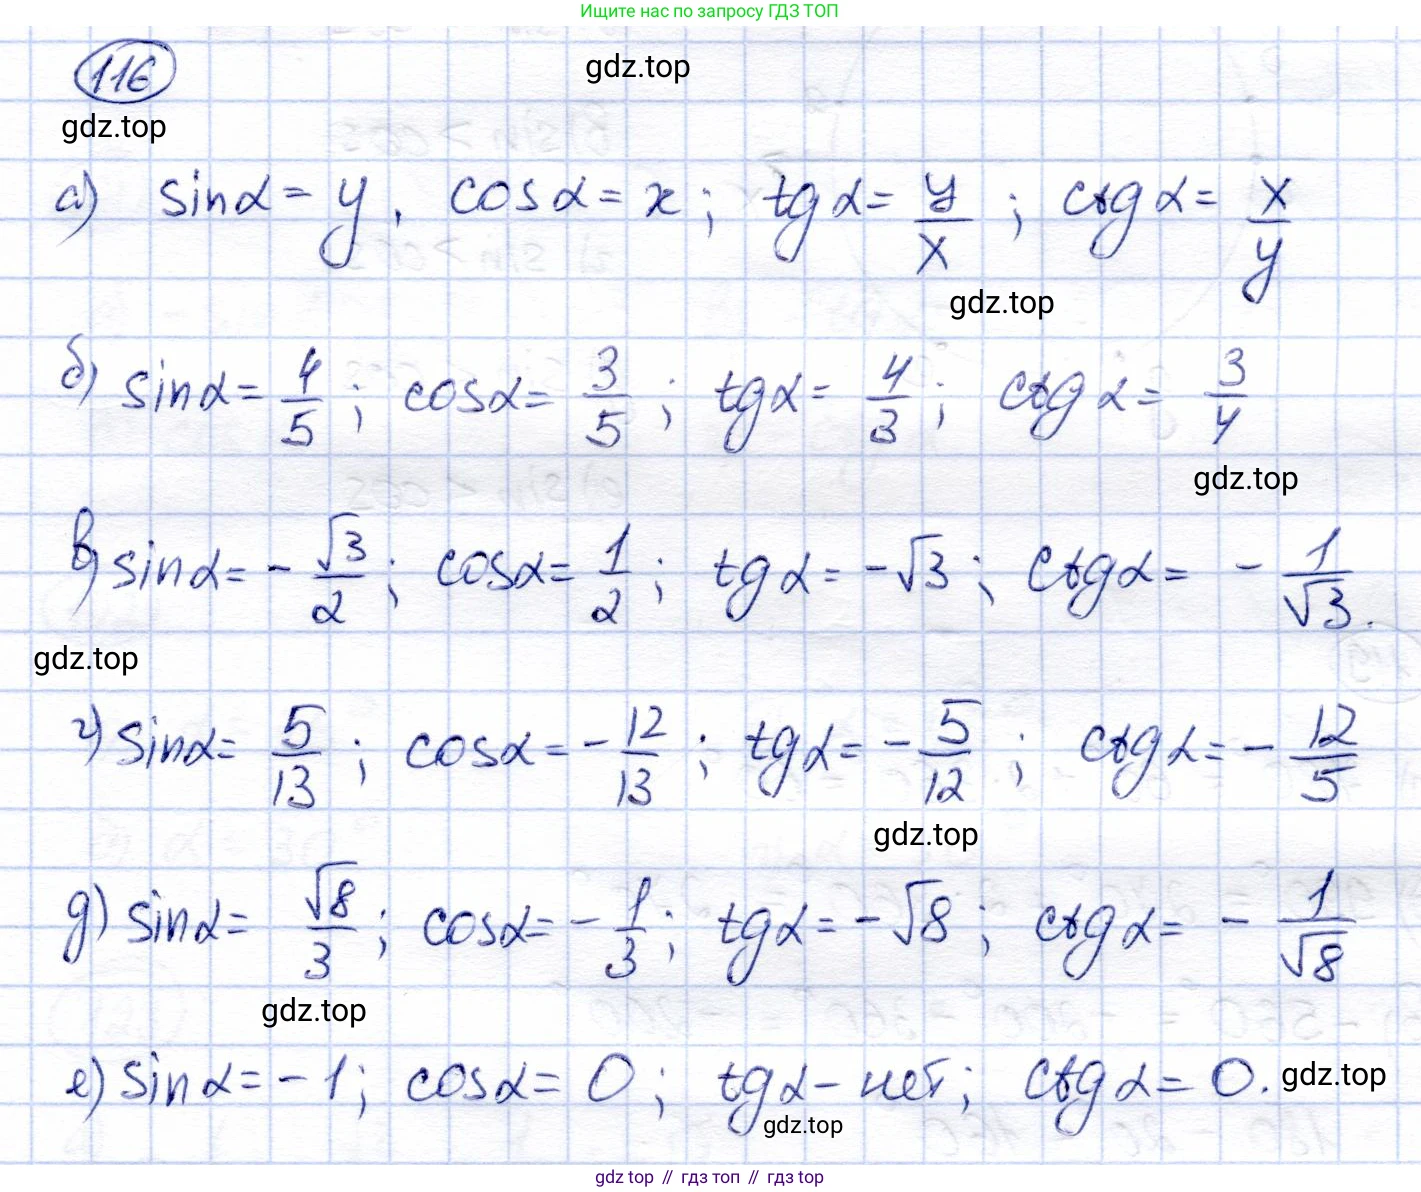 Ищите нас по запросу ГДЗ ТОП
116
gdz.top
gdz.top
а) sinα = y, cosα = x; tgα = y/x; ctgα = x/y
gdz.top
б) sinα = 4/5; cosα = 3/5; tgα = 4/3; ctgα = 3/4
gdz.top
в) sinα = - √3/2; cosα = 1/2; tgα = -√3; ctgα = - 1/√3.
gdz.top
г) sinα = 5/13; cosα = - 12/13; tgα = - 5/12; ctgα = - 12/5
gdz.top
д) sinα = √8/3; cosα = - 1/3; tgα = -√8; ctgα = - 1/√8
gdz.top
е) sinα = - 1; cosα = 0; tgα - нет; ctgα = 0.
gdz.top
gdz.top
gdz top // гдз топ // gdz top